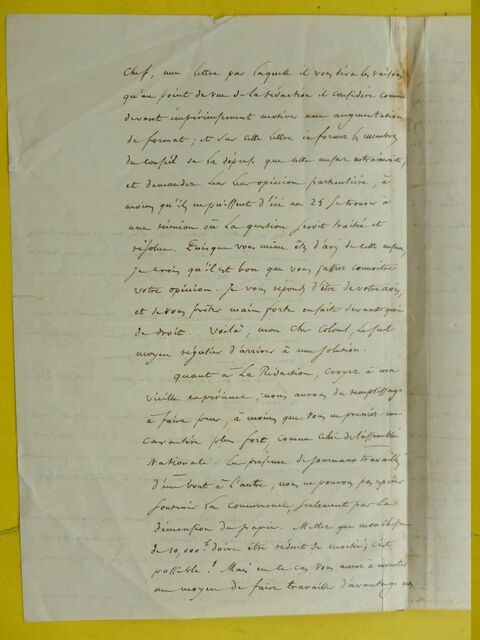 Chef, une lettre par laquelle il vous dira les raisons
qu'au point de vue de la rédaction il considère comme
devant impérieusement motiver une augmentation
de format ; et sur cette lettre informer les membres
du conseil de la dépense que cette mesure entraînerait,
et demander leur opinion particulière, à
moins qu'ils ne puissent d'ici au 25 se trouver à
une réunion où la question serait traitée et
résolue. Puisque vous même êtes d'avis de cette mesure,
je crois qu'il est bon que vous fassiez connaître
votre opinion. Je vous réponds d'être de votre avis,
et de vous prêter main forte ensuite devant qui
de droit. Voilà, mon cher Colonel, le seul
moyen régulier d'arriver à une solution.
quant à La Rédaction, croyez à ma
vieille expérience ; nous aurons du remplissage
à faire pour, à moins que vous ne preniez un
caractère plus fort, comme celui de l'assemblée
Nationale. En présence de journaux travaillés
d'un bout à l'autre, nous ne pouvons pas espérer
soutenir la concurrence, seulement par la
dimension du papier. Mettez que mon chiffre
de 10,000 f. doive être réduit de moitié ; c'est
possible ! Mais en ce cas vous aurez à
un moyen de faire travailler d'avantage